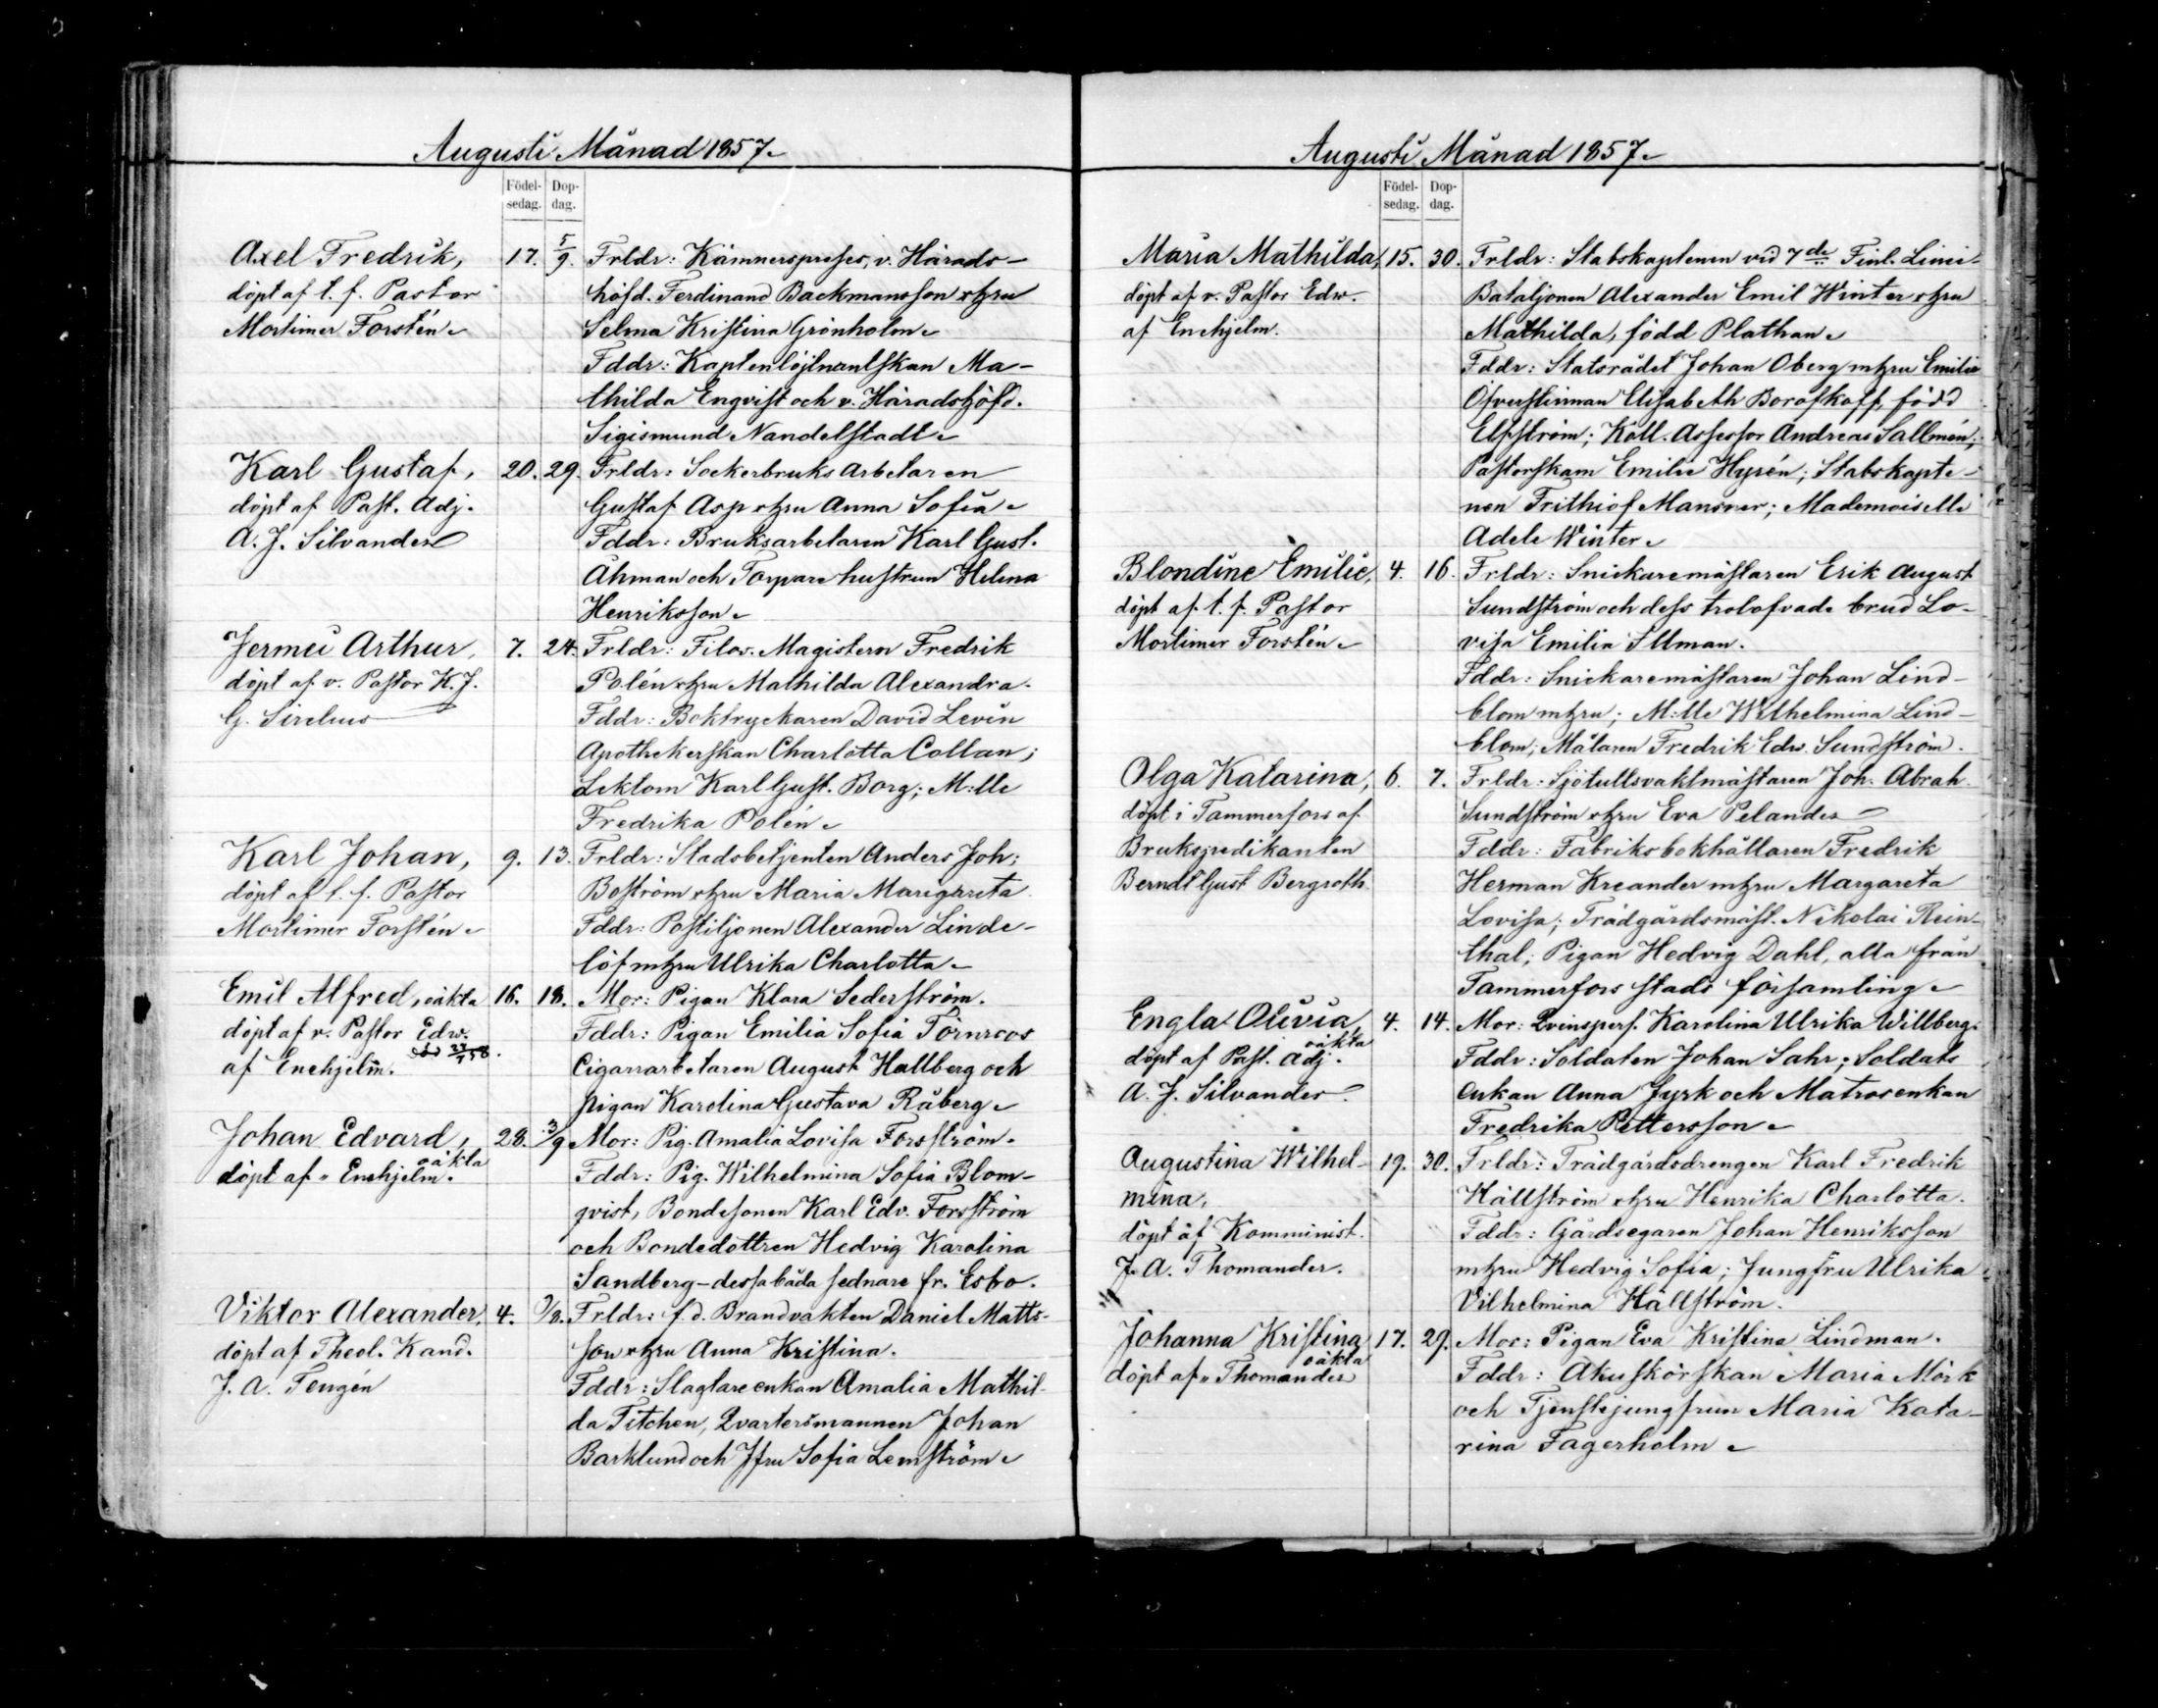 Augusti Månad 1857.
Födel-
sedag.
Dop-
dag.
Axel Fredrik,
döpt af t. f. Pastor
Mortimer Forstén
17. 5/9.
Frldr: Kämnerspreses, v. Härads-
höfd. Ferdinand Backmansson o hru
Selma Kristina Grönholm
Fddr: Kaptenlöjtnantskan Ma-
thilda Engvist och v. Häradshöfd.
Sigismund Nandelstadt
Karl Gustaf,
döpt af Past. Adj.
A. J. Silvander
20. 29.
Frldr: Sockerbruks Arbetaren
Gustaf Asp o hru Anna Sofia
Fddr: Bruksarbetaren Karl Gust.
Åhman och Torpare hustrun Helena
Henriksson
Arthur,
döpt af v. Pastor K. J.
G. Sirelius
7. 24.
Frldr: Filos. Magistern Fredrik
Polén o hru Mathilda Alexandra.
Fddr: Boktryckaren David Levin
Apothekerskan Charlotta Collan;
Lektorn Karl Gust. Borg; M:lle
Fredrika Polén
Karl Johan,
döpt af t. f. Pastor
Mortimer Forstén
9. 13.
Frldr: Stadsbetjenten Anders Joh:
Boström o hru Maria Margareta
Fddr: Postiljonen Alexander Linde-
löf m hru Ulrika Charlotta
Emil Alfred, oäkta
döpt af v. Pastor Edw.
af Enehjelm.
16. 18.
Mor: Pigan Klara Sederström.
Fddr: Pigan Emilia Sofia Törnroos
Cigarrarbetaren August Hallberg och
pigan Karolina Gustava Råberg
Johan Edvard,
oäkta
döpt af " Enehjelm.
28. 3/9
Mor: Pig. Amalia Lovisa Forsström.
Fddr: Pig. Wilhelmina Sofia Blom-
qvist, Bondesonen Karl Edv. Forsström
och Bondedottren Hedvig Karolina
Sandberg - dessa båda sednare fr. Esbo.
Viktor Alexander,
döpt af Theol. Kand.
J. A. Tengén
4. 9/8.
Frldr: f.d. Brandvakten Daniel Matts-
son o hru Anna Kristina.
Fddr: Slagtareenkan Amalia Mathil-
da Titchen, Qvartersmannen Johan
Barklund och Jfru Sofia Lemström
Augusti Månad 1857.
Födel-
sedag.
Dop-
dag.
Maria Mathilda,
döpt af v. Pastor Edw.
af Enehjelm.
15. 30.
Frldr: Stabskaptenen vid 7de Finl. Linie-
Bataljonen Alexander Emil Winter o hru
Mathilda, född Plathan
Fddr: Statsrådet Johan Oberg m hru Emilie
Öfverstinnan Elisabeth Boroffkoff, född
Elfström; Koll. Assessor Andreas Sallmén;
Pastorskan Emilie Hyrén; Stabskapte-
nen Frithiof Mansner; Mademoiselle
Adele Winter
Blondine Emilie,
döpt af t. f. Pastor
Mortimer Forstén
4. 16.
Frldr: Snickaremästaren Erik August
Sundström och dess trolofvade brud Lo-
visa Emilia Illman.
Fddr: Snickaremästaren Johan Lind-
blom m hru; M:lle Wilhelmina Lind-
blom; Målaren Fredrik Edw. Sundström.
Olga Katarina,
döpt i Tammerfors af
Brukspredikanten
Berndt Gust Bergroth
6. 7.
Frldr: Sjötullsvaktmästaren Joh. Abrah.
Sundström o hru Eva Pelander
Fddr: Fabriksbokhållaren Fredrik
Herman Kreander m hru Margareta
Lovisa; Trädgårdsmäst. Nikolai Rein-
thal; Pigan Hedvig Dahl, alla från
Tammerfors stads församling
Engla Olivia,
oäkta
döpt af Past. Adj.
A. J. Silvander.
4. 14.
Mor: Qvinspers. Karolina Ulrika Willberg.
Fddr: Soldaten Johan Sahr; Soldats
enkan Anna Jyrk och Matrosenkan
Fredrika Pettersson
Augustina Wilhel-
mina,
döpt af Komminist.
J. A. Thomander.
19. 30.
Frldr: Trädgårdsdrengen Karl Fredrik
Hällström o hru Henrika Charlotta.
Fddr: Gårdsegaren Johan Henriksson
m hru Hedvig Sofia; Jungfru Ulrika
Vilhelmina Hällström.
Johanna Kristina
oäkta
döpt af " Thomander
17. 29.
Mor: Pigan Eva Kristina Lindman.
Fddr: Akuskörskan Maria Mörk
och Tjenstejungfrun Maria Kata-
rina Fagerholm